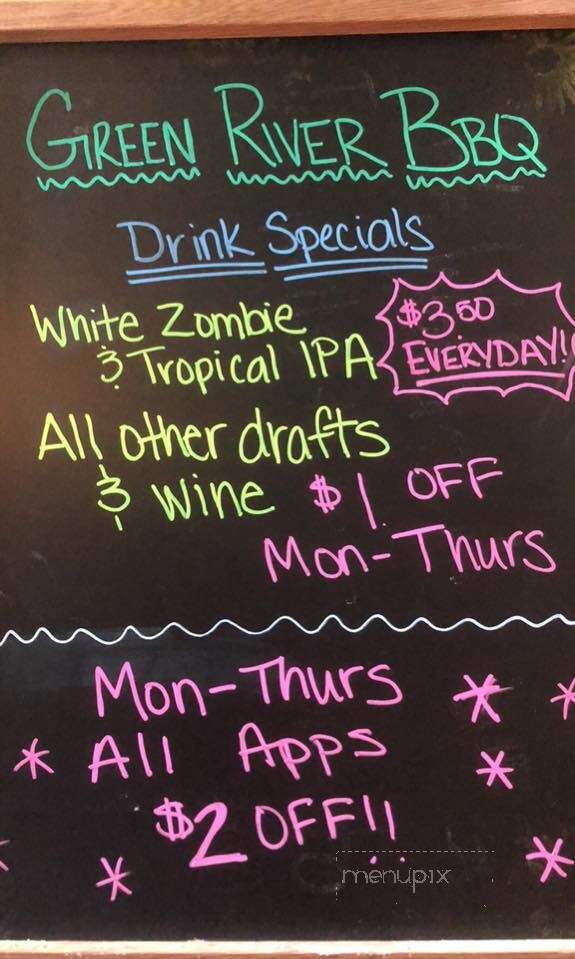 GREEN RIVER BBQ
Drink Specials
White Zombie
& Tropical IPA
$3.50
EVERYDAY!
All other drafts
& Wine $1 OFF
Mon-Thurs
Mon-Thurs
All Apps
$2 OFF!!
menupix